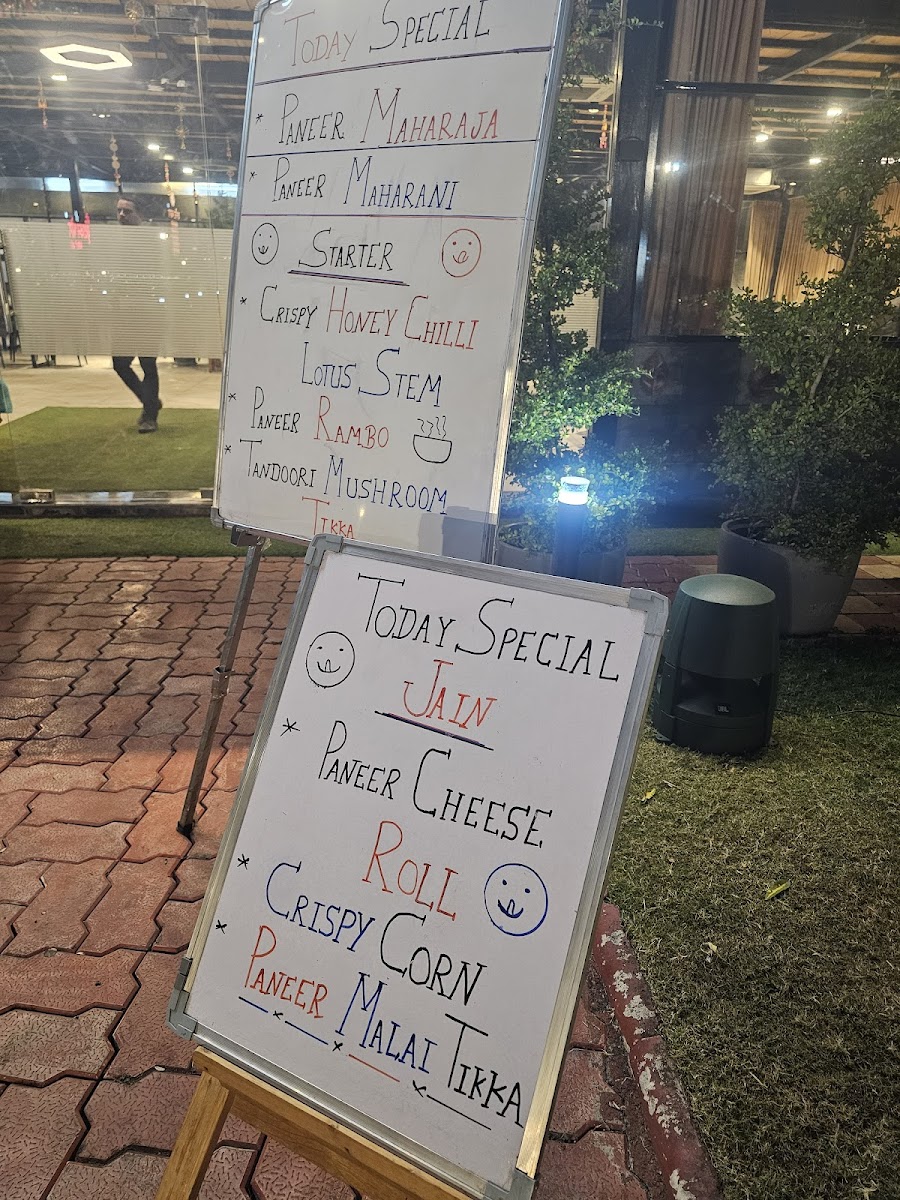 TODAY SPECIAL
* PANEER MAHARAJA
* PANEER MAHARANI
STARTER
* CRISPY HONEY CHILLI
LOTUS STEM
* PANEER RAMBO
* TANDOORI MUSHROOM
TIKKA
TODAY SPECIAL
JAIN
* PANEER CHEESE
ROLL
* CRISPY CORN
* PANEER MALAI TIKKA
JBL